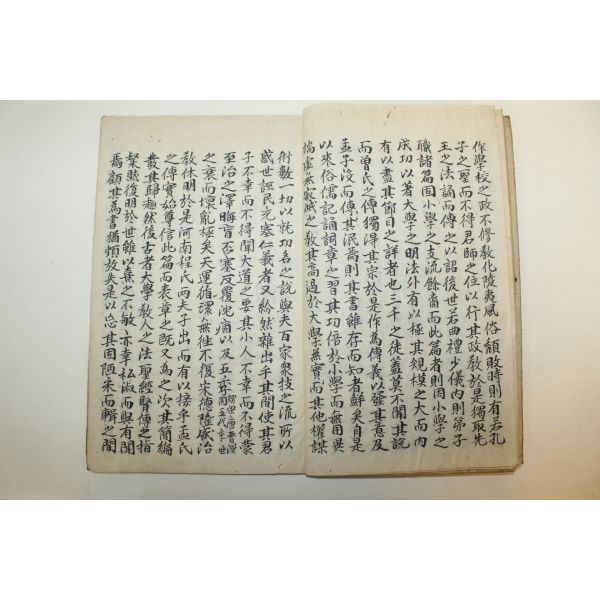 作學校之政不修敎化陵夷風俗頹敗時則有若孔
子之聖而不得君師之位以行其政敎於是獨取先
王之法誦而傳之以詔後世若曲禮少儀內則弟子
職諸篇固小學之支流餘裔而此篇者則因小學之
成功以著大學之明法外有以極其規模之大而內
有以盡其節目之詳者也三千之徒蓋莫不聞其說
而曾氏之傳獨得其宗於是作爲傳義以發其意及
孟子沒而傳其泯焉則其書雖存而知者鮮矣自是
以來俗儒記誦詞章之習其功倍於小學而無用異
端虛無寂滅之敎其高過於大學無實而其他權謀
術數一切以就功名之說與夫百家衆技之流所以
惑世誣民充塞仁義者又紛然雜出乎其間使其君
子不幸而不得聞大道之要其小人不幸而不得蒙
至治之澤晦盲否塞反覆沈痼以及五季
之衰而壞亂極矣天運循環無往不復宋德隆盛治
敎休明於是河南程氏兩夫子出而有以接乎孟氏
之傳實始尊信此篇而表章之旣又爲之次其簡編
發其歸趣然後古者大學敎人之法聖經賢傳之指
粲然復明於世雖以熹之不敏亦幸私淑而與有聞
焉顧其爲書猶頗放失是以忘其固陋采而輯之間